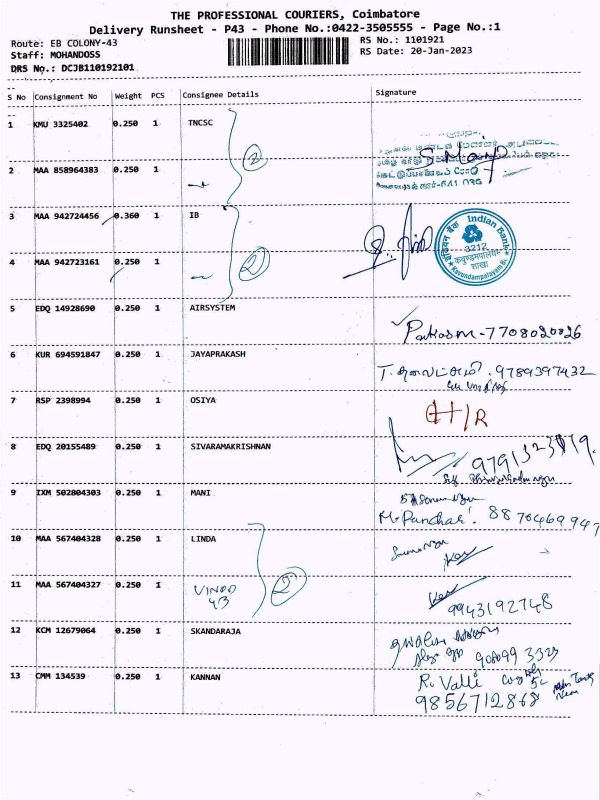 THE PROFESSIONAL COURIERS, Coimbatore
Delivery Runsheet - P43 - Phone No.:0422-3505555 - Page No.:1
Route: EB COLONY-43 RS No.: 1101921
Staff: MOHANDOSS RS Date: 20-Jan-2023
DRS No.: DCJB110192101
S No Consignment No Weight PCS Consignee Details Signature
1 KMU 3325402 0.250 1 TNCSC
2
2 MAA 858964383 0.250 1
3 MAA 942724456 0.360 1 IB
Indian Bank
3212
शाखा
4 MAA 942723161 0.250 1
2
5 EDQ 14928690 0.250 1 AIRSYSTEM
7708020826
6 KUR 694591847 0.250 1 JAYAPRAKASH
9789397432
7 RSP 2398994 0.250 1 OSIYA
8 EDQ 20155489 0.250 1 SIVARAMAKRISHNAN
9 IXM 502804303 0.250 1 MANI
10 MAA 567404328 0.250 1 LINDA
11 MAA 567404327 0.250 1 VINOD
43
2
9943192748
12 KCM 12679064 0.250 1 SKANDARAJA
13 CMM 134539 0.250 1 KANNAN
R. Valli
9856712868